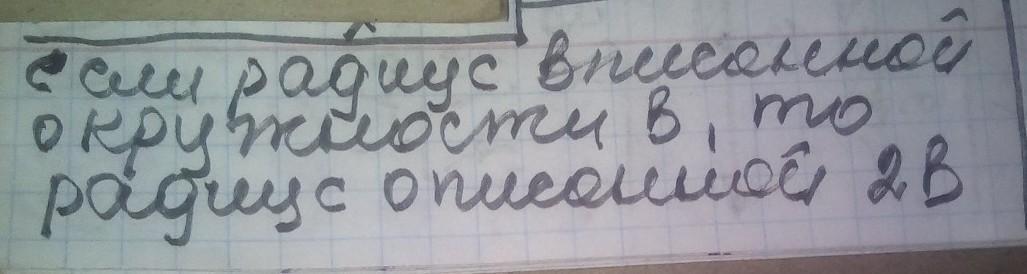 если радиус вписанной
окружности В, то
радиус описанной 2В